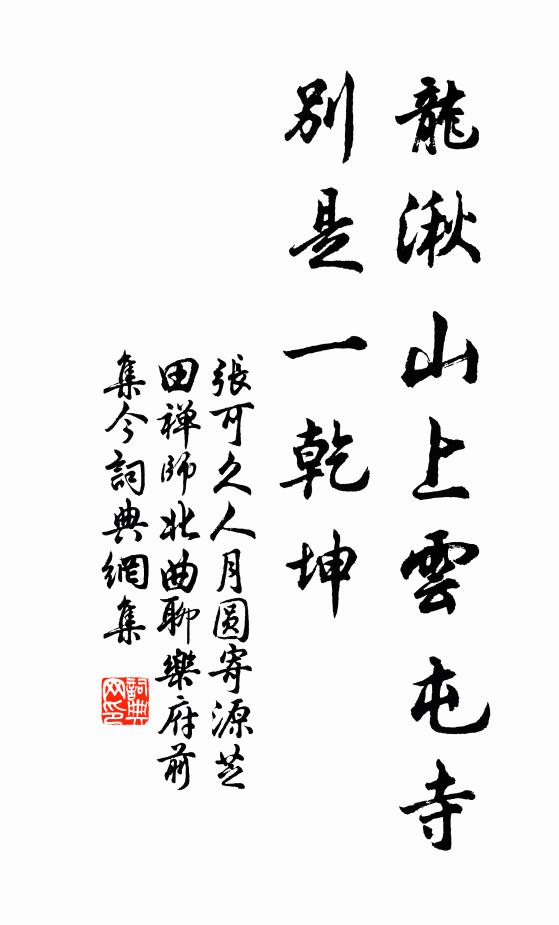 龍湫山上雲屯寺
別是一乾坤
張可久人月圓寄源芝
田禅師北曲聊樂府前
集今詞典網集
詞典网印